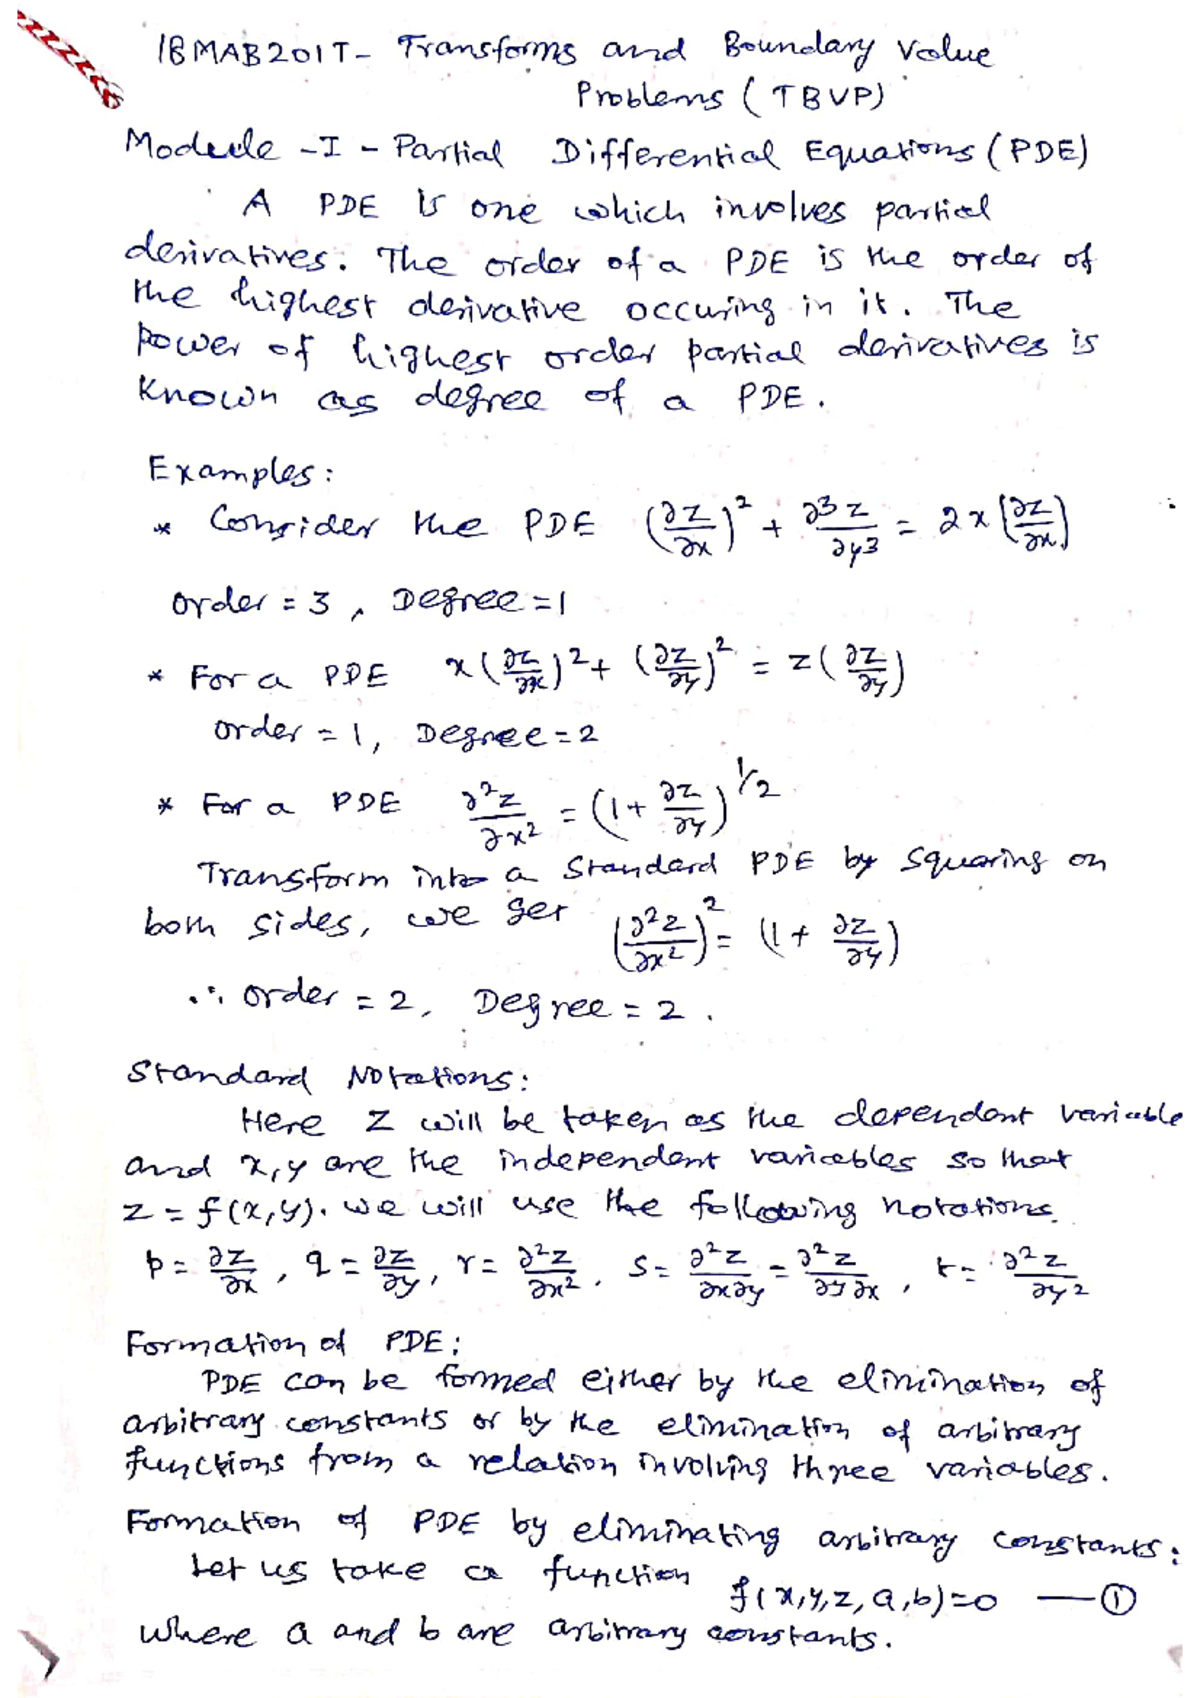 18MAB201T - Transforms and Boundary Value
Problems (TBVP)
Module - I - Partial Differential Equations (PDE)
A PDE is one which involves partial
derivatives. The order of a PDE is the order of
the highest derivative occuring in it. The
power of highest order partial derivatives is
known as degree of a PDE.
Examples:
* Consider the PDE (∂z/∂x)² + ∂³z/∂y³ = 2x(∂z/∂x)
order = 3, Degree = 1
* For a PDE x(∂z/∂x)² + (∂z/∂y)² = z(∂z/∂y)
order = 1, Degree = 2
* For a PDE ∂²z/∂x² = (1 + ∂z/∂y)^1/2
Transform into a Standard PDE by squaring on
both sides, we get (∂²z/∂x²)² = (1 + ∂z/∂y)
∴ order = 2, Degree = 2.
Standard Notations:
Here z will be taken as the dependent variable
and x,y are the independent variables so that
z = f(x,y). we will use the following notations.
p = ∂z/∂x, q = ∂z/∂y, r = ∂²z/∂x², s = ∂²z/∂x∂y = ∂²z/∂y∂x, t = ∂²z/∂y²
Formation of PDE:
PDE can be formed either by the elimination of
arbitrary constants or by the elimination of arbitrary
functions from a relation involving three variables.
Formation of PDE by eliminating arbitrary constants:
Let us take a function f(x,y,z,a,b)=0 — ①
where a and b are arbitrary constants.